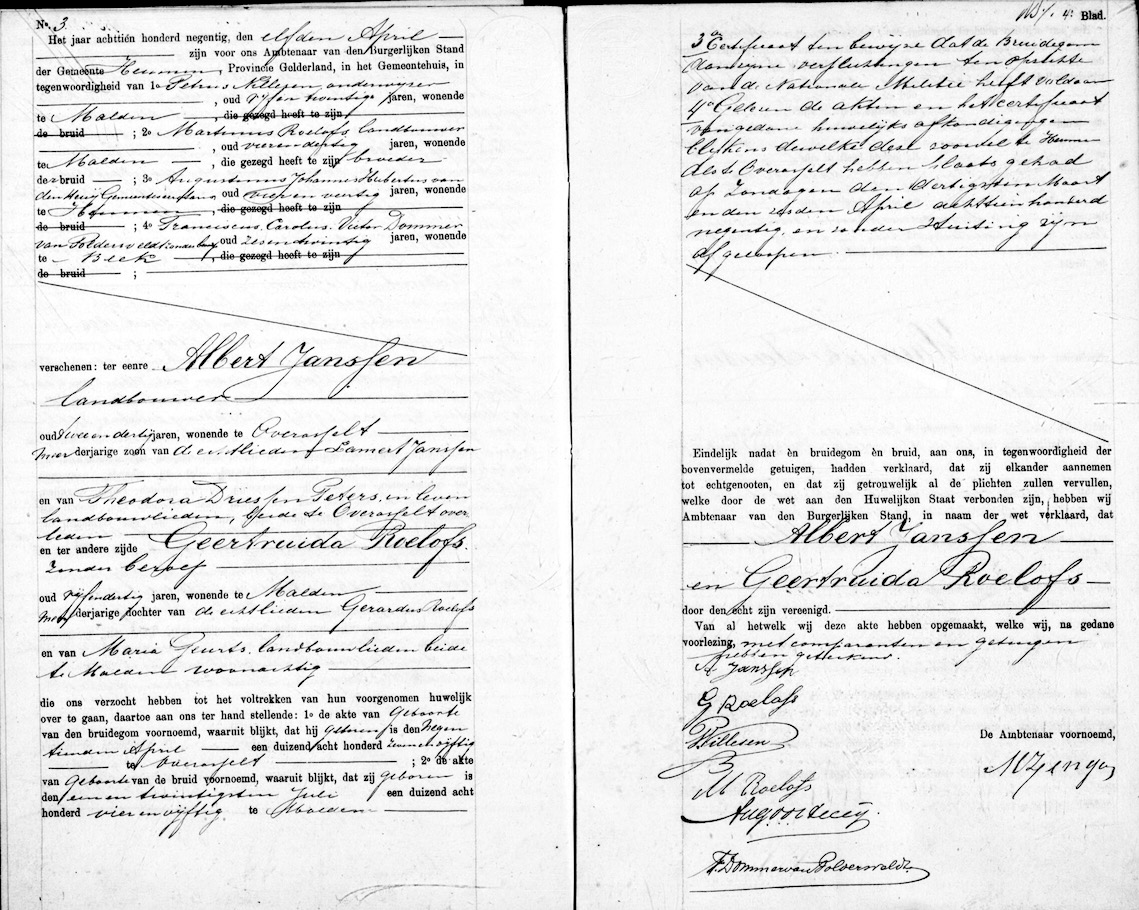 No. 3.
Het jaar achttien honderd negentig, den elfden April
zijn voor ons Ambtenaar van den Burgerlijken Stand
der Gemeente Heumen, Provincie Gelderland, in het Gemeentehuis, in
tegenwoordigheid van 1o Petrus Willesen, onderwijzer
, oud vijf en twintig jaren, wonende
te Malden, die gezegd heeft te zijn
de bruid ; 2o Martinus Roelofs, landbouwer
, oud vier en dertig jaren, wonende
te Malden, die gezegd heeft te zijn broeder
der bruid ; 3o Augustinus Johannes Hubertus van
den Gemeentesecretaris, oud vier en veertig jaren, wonende
te Heumen, die gezegd heeft te zijn
de bruid ; 4o Franciscus Carolus Victor Dommer
van Polderveldt, oud zesentwintig jaren, wonende
te Beek, die gezegd heeft te zijn
de bruid ;
verschenen: ter eenre Albert Janssen
landbouwer
oud twee en dertig jaren, wonende te Overasselt
meerderjarige zoon van de echtlieden Lamert Janssen
en van Theodora Driessen Peters, in leven
landbouwlieden, beide te Overasselt over
leden
en ter andere zijde Geertruida Roelofs.
zonder beroep
oud vijfendertig jaren, wonende te Malden
meerderjarige dochter van de echtlieden Gerardus Roelofs
en van Maria Geurts, landbouwlieden beide
te Malden woonachtig
die ons verzocht hebben tot het voltrekken van hun voorgenomen huwelijk
over te gaan, daartoe aan ons ter hand stellende: 1o de akte van Geboorte
van den bruidegom voornoemd, waaruit blijkt, dat hij geboren is den negen
tienden April een duizend acht honderd zeven en vijftig
te Overasselt ; 2o de akte
van Geboorte van de bruid voornoemd, waaruit blijkt, dat zij geboren is
den een en twintigsten Juli een duizend acht
honderd vier en vijftig te Malden
4e Blad.
3o Certificaat ten bewijze dat de Bruidegom
aan zijne verplichtingen ten opzichte
van de Nationale Militie heeft voldaan
4o Gelezen de akten en het certificaat
van gedane huwelijks afkondigingen
blijkens dewelke deze zoowel te Heumen
als te Overasselt hebben plaats gehad
op Zondagen den dertigsten Maart
en den zesden April achttien honderd
negentig, en zonder stuiting zijn
afgeloopen.
Eindelijk nadat èn bruidegom èn bruid, aan ons, in tegenwoordigheid der
bovenvermelde getuigen, hadden verklaard, dat zij elkander aannemen
tot echtgenooten, en dat zij getrouwelijk al de plichten zullen vervullen,
welke door de wet aan den Huwelijken Staat verbonden zijn, hebben wij
Ambtenaar van den Burgerlijken Stand, in naam der wet verklaard, dat
Albert Janssen
en Geertruida Roelofs
door den echt zijn vereenigd.
Van al hetwelk wij deze akte hebben opgemaakt, welke wij, na gedane
voorlezing, met comparanten en getuigen
hebben geteekend.
A Janssen
G Roelofs
PWillesen
De Ambtenaar voornoemd,
M Roelofs
F. Dommer van Polderveldt.